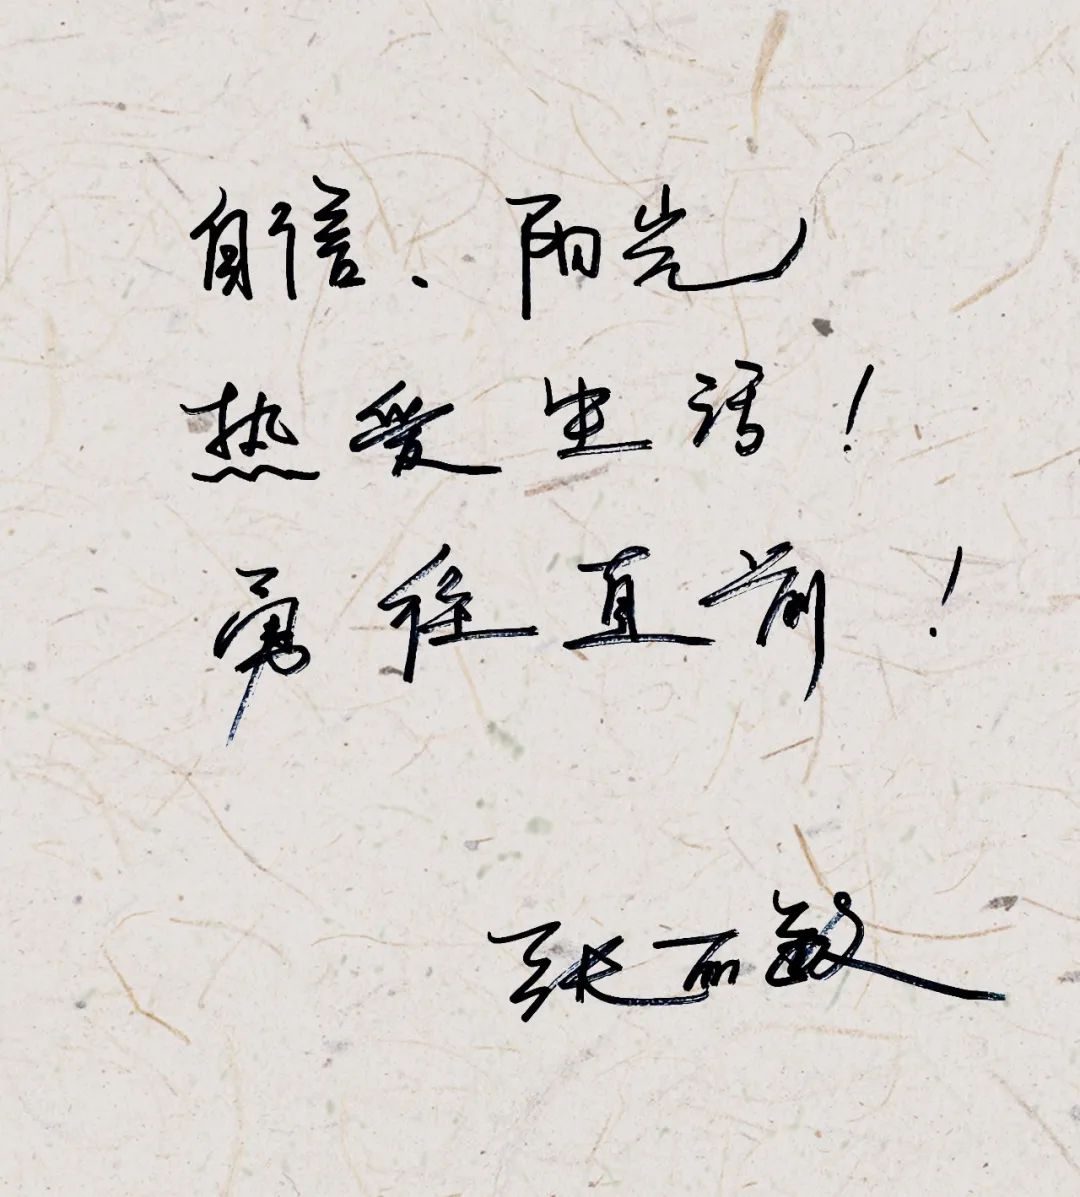 自信、阳光
热爱生活！
勇往直前！
张丽敏